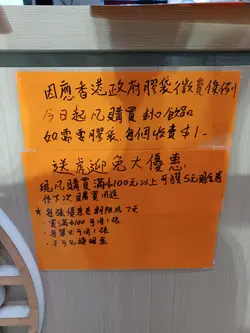 因應香港政府膠袋徵費條例
今日起凡購買封口飲品
如需要膠袋，每個收費$1.
送虎迎兔大優惠
現凡購買滿$100元以上可獲5元現金券
作下次購買用途
★每張優惠卷期限為7天
・買滿$100可用1張
・每單只可用1張
・不可兌換現金